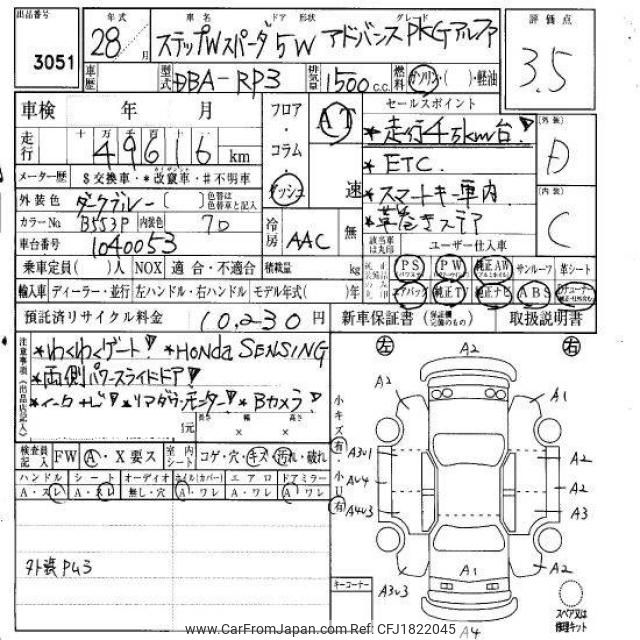 出品番号 年式 車名 ドア 形状 グレード 評価点
3051 28/月 ステップWスパーダ 5W アドバンスPKGアルファ 3.5
車歴 型式 DBA-RP3 排気量 1500 c.c. 燃料 ガソリン・( )・軽油
車検 年 月 フロア・コラム・ダッシュ AT 速 セールスポイント
走行 十 万 千 百 十 49616 km
*走行4万km台! (外装) D
メーター歴 $交換車・*改竄車・#不明車
*ETC.
外装色 ダークブルー ( ) 色替は色替車と記入
*スマートキー車内 (内装) C
カラーNo. B553P 内装色 70 冷房 AAC 無
*革巻きステア
車台番号 1040053
該当車は丸印 ユーザー仕入車
乗車定員( )人 NOX 適合・不適合 積載量 kg PS PW 純正AW サンルーフ 革シート
輸入車 ディーラー・並行 左ハンドル・右ハンドル モデル年式( )年 エアバッグ 純正TV 純正ナビ ABS
預託済リサイクル料金 10,230 円 新車保証書 取扱説明書
注意事項(出品店記入)
*わくわくゲート! *HONDA SENSING
*両側パワースライドドア!
*リアダウンモニター! *Bカメラ!
長さ 幅 高さ
元 × ×
検査員記入 FW A・X要ス 室内シート コゲ・穴・キズ・汚れ・破れ
ハンドル シート オーディオ ホイル(カバー) エアロ ドアミラー
A・スレ A・スレ 無し・穴 A・ワレ A・ワレ A・ワレ
外装PU3
左 右
小キズ 有
小U 有
A2
A2 A1
A3U1 A2
AU4 A2
A4U3 A3
A1
A3U3
A4
キーコーナー
スペア又は修理キット
www.CarFromJapan.com Ref: CFJ1822045